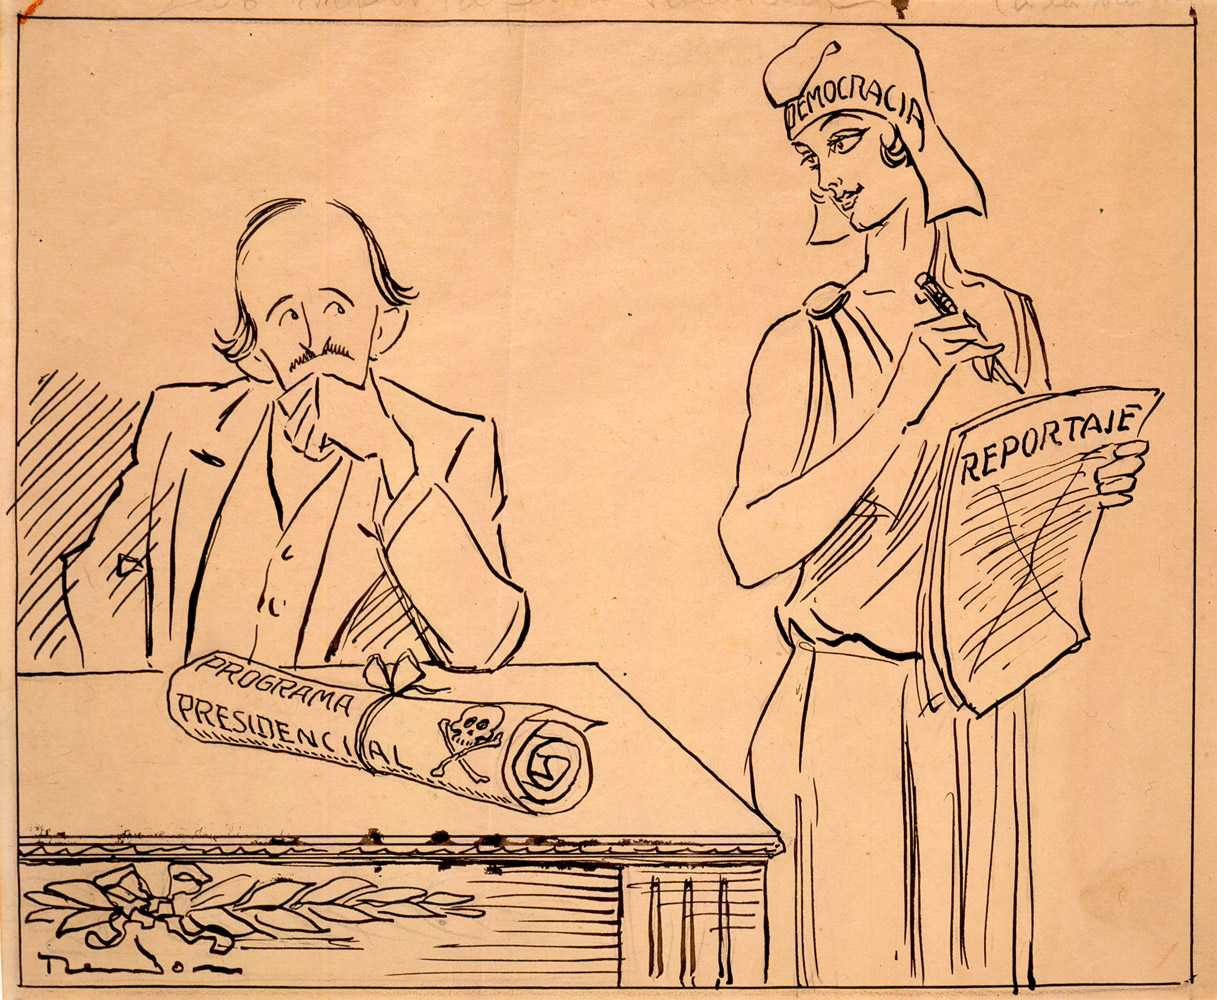 DEMOCRACIA
REPORTAJE
PROGRAMA
PRESIDENCIAL
Rendon